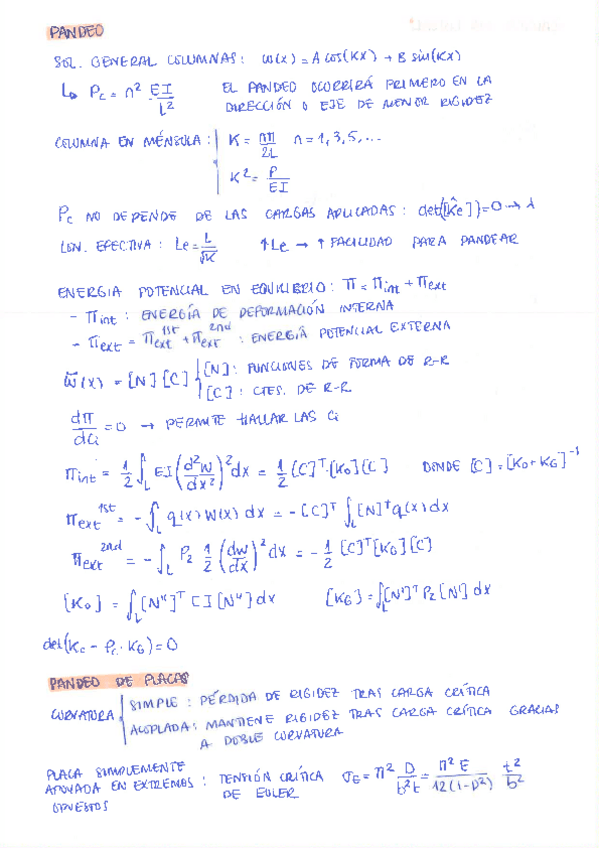 PANDEO
SOL. GENERAL COLUMNAS: ω(x) = A cos(Kx) + B sin(Kx)
↳ Pc = π² EI/L² EL PANDEO OCURRIRÁ PRIMERO EN LA
DIRECCIÓN O EJE DE MENOR RIGIDEZ
COLUMNA EN MÉNSULA: K = nπ/2L n = 1, 3, 5, ...
K² = P/EI
Pc NO DEPENDE DE LAS CARGAS APLICADAS: det([K̂e]) = 0 → λ
LON. EFECTIVA: Le = L/√K ↑Le → ↑ FACILIDAD PARA PANDEAR
ENERGIA POTENCIAL EN EQUILIBRIO: Π = Πint + Πext
- Πint: ENERGÍA DE DEFORMACIÓN INTERNA
- Πext = Πext 1st + Πext 2nd: ENERGÍA POTENCIAL EXTERNA
ω̃(x) = [N][C] [N]: FUNCIONES DE FORMA DE R-R
[C]: CTES. DE R-R
dΠ/dCi = 0 → PERMITE HALLAR LAS Ci
Πint = 1/2 ∫L EI (d²w/dx²)² dx = 1/2 [C]ᵀ·[K0][C] DONDE [C] = [K0 + KG]⁻¹
Πext 1st = - ∫L q(x) w(x) dx = - [C]ᵀ ∫L [N]ᵀ q(x) dx
Πext 2nd = - ∫L P2 1/2 (dw/dx)² dx = - 1/2 [C]ᵀ [KG] [C]
[K0] = ∫L [N'']ᵀ CI [N''] dx [KG] = ∫L [N']ᵀ P2 [N'] dx
det(Kc - Pc · KG) = 0
PANDEO DE PLACAS
CURVATURA SIMPLE: PÉRDIDA DE RIGIDEZ TRAS CARGA CRÍTICA
ACOPLADA: MANTIENE RIGIDEZ TRAS CARGA CRÍTICA GRACIAS
A DOBLE CURVATURA
PLACA SIMPLEMENTE
APOYADA EN EXTREMOS: TENSIÓN CRÍTICA σE = π² D/b²t = π² E/12(1-ν²) t²/b²
OPUESTOS DE EULER